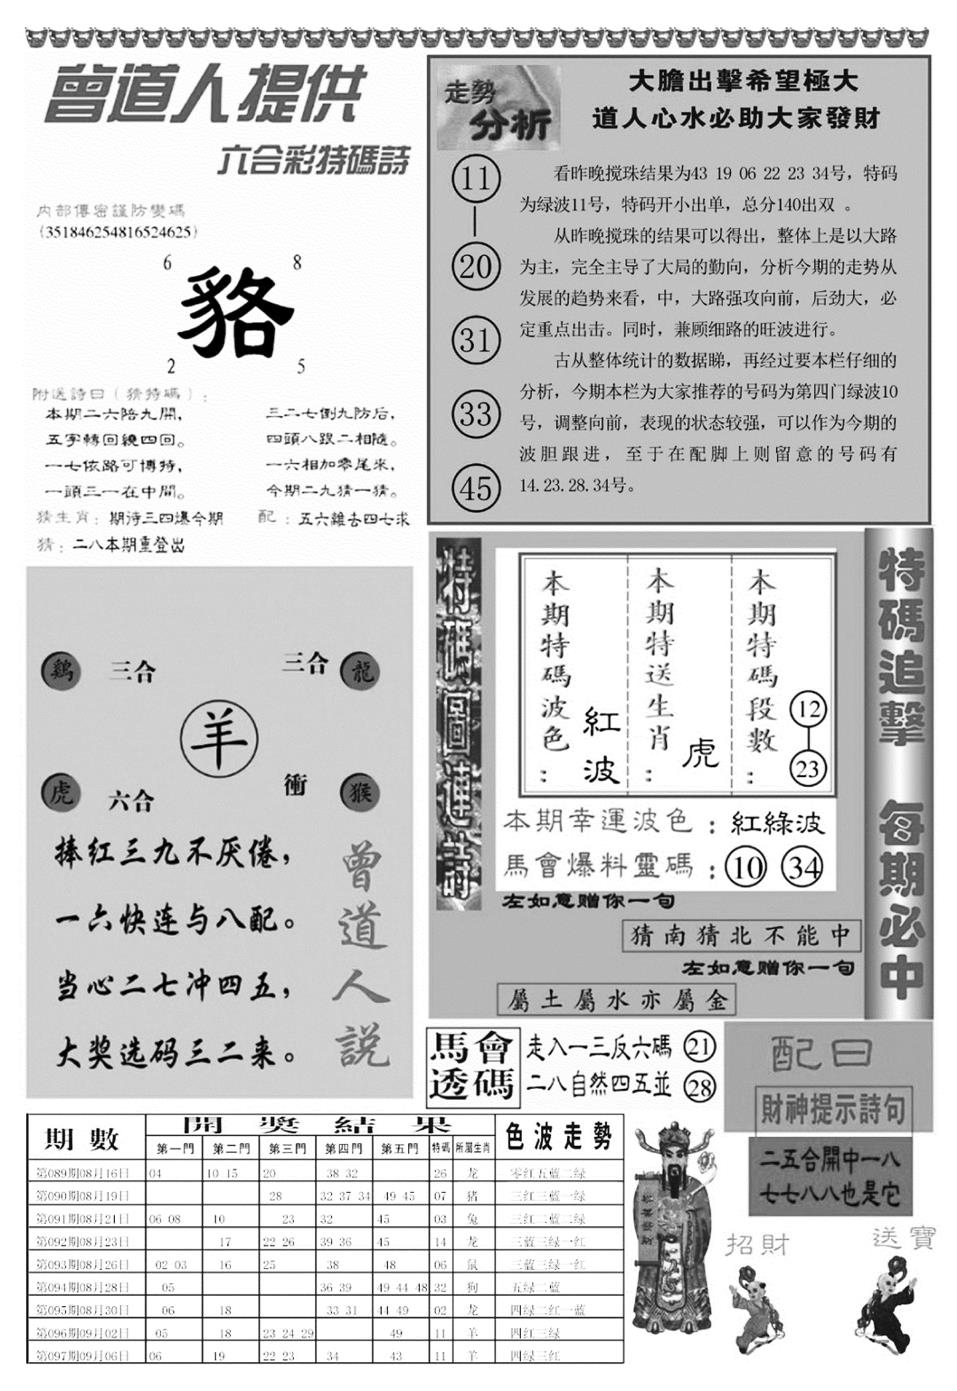 曾道人提供
六合彩特碼詩
内部傳密謹防變碼
(351846254816524625)
6 8
貉
2 5
附送詩曰(猜特碼):
本期二六陪九開, 三二七倒九防后,
五字轉回繞四回。 四頭八跟二相隨。
一七依路可博特, 一六相加零尾來,
一頭三一在中間。 今期二九猜一猜。
猜生肖: 期待三四爆今期 配: 五六雖去四七求
猜: 二八本期重登出
走勢
分析
大膽出擊希望極大
道人心水必助大家發財
11
20
31
33
45
看昨晚搅珠结果为43 19 06 22 23 34号，特码
为绿波11号，特码开小出单，总分140出双 。
从昨晚搅珠的结果可以得出，整体上是以大路
为主，完全主导了大局的勤向，分析今期的走势从
发展的趋势来看，中，大路强攻向前，后劲大，必
定重点出击。同时，兼顾细路的旺波进行。
古从整体统计的数据睇，再经过要本栏仔细的
分析，今期本栏为大家推荐的号码为第四门绿波10
号，调整向前，表现的状态较强，可以作为今期的
波胆跟进，至于在配脚上则留意的号码有
14.23.28.34号。
鷄 三合 三合 龍
羊
虎 六合 衝 猴
捧红三九不厌倦，
一六快连与八配。
当心二七冲四五，
大奖选码三二来。
曾道人説
特碼圖連詩
本期特碼波色: 紅波
本期特送生肖: 虎
本期特碼段數: 12 23
本期幸運波色: 紅綠波
馬會爆料靈碼: 10 34
左如意赠你一句
猜南猜北不能中
左如意赠你一句
屬土屬水亦屬金
特碼追擊 每期必中
馬會
透碼
走入一三反六碼 21
二八自然四五並 28
配曰
財神提示詩句
二五合開中一八
七七八八也是它
招財
送寶
期數 開獎結果 色波走勢
第一門 第二門 第三門 第四門 第五門 特碼 所屬生肖
第089期08月16日 04 10 15 20 38 32 26 龙 零红五蓝二绿
第090期08月19日 28 32 37 34 49 45 07 猪 三红三蓝一绿
第091期08月21日 06 08 10 23 32 45 03 兔 三红二蓝二绿
第092期08月23日 17 22 26 39 36 45 14 龙 三蓝三绿一红
第093期08月26日 02 03 16 25 38 48 06 鼠 三蓝三绿一红
第094期08月28日 05 36 39 49 44 48 32 狗 五绿二蓝
第095期08月30日 06 18 33 31 44 49 02 龙 四绿二红一蓝
第096期09月02日 05 18 23 24 29 49 11 羊 四红三绿
第097期09月06日 06 19 22 23 34 43 11 羊 四绿三红